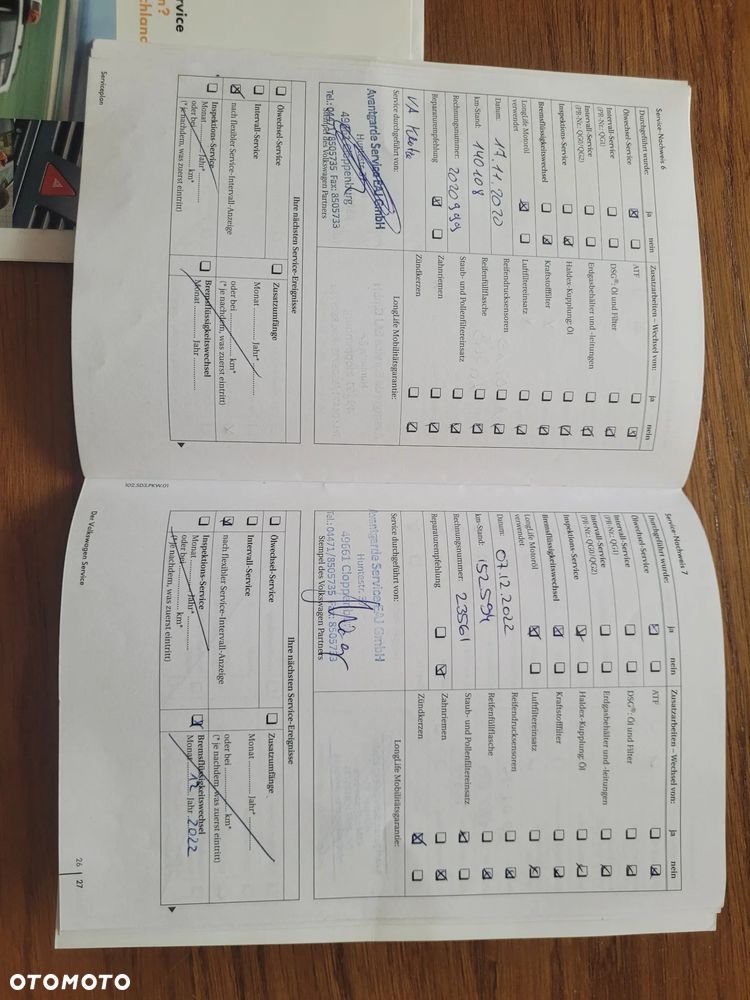 rvice
n?
chland
Service-Nachweis 6
Durchgeführt wurde:
ja
nein
Ölwechsel-Service
Intervall-Service
(PR-Nr.: QG1)
Intervall-Service
(PR-Nr.: QG0/QG2)
Inspektions-Service
Bremsflüssigkeitswechsel
LongLife Motoröl
verwendet
Datum: 17.11.2020
km-Stand: 140108
Rechnungsnummer: 2020999
Reparaturempfehlung
Service durchgeführt von:
Avantgarde Service EAJ GmbH
Cloppenburg
Tel.: 04471/8505735 Fax: 8505733
Stempel des Volkswagen Partners
Zusatzarbeiten – Wechsel von:
ja
nein
ATF
DSG®: Öl und Filter
Erdgasbehälter und -leitungen
Haldex-Kupplung: Öl
Kraftstofffilter
Luftfiltereinsatz
Reifendrucksensoren
Reifenfüllflasche
Staub- und Pollenfiltereinsatz
Zahnriemen
Zündkerzen
LongLife Mobilitätsgarantie:
Ihre nächsten Service-Ereignisse
Ölwechsel-Service
Intervall-Service
nach flexibler Service-Intervall-Anzeige
Inspektions-Service
Monat Jahr*
oder bei km*
(*je nachdem, was zuerst eintritt)
Zusatzumfänge
Monat Jahr*
oder bei km*
(*je nachdem, was zuerst eintritt)
Bremsflüssigkeitswechsel
Monat Jahr
Serviceplan
102.5D3.PKW.01
Service-Nachweis 7
Durchgeführt wurde:
ja
nein
Ölwechsel-Service
Intervall-Service
(PR-Nr.: QG1)
Intervall-Service
(PR-Nr.: QG0/QG2)
Inspektions-Service
Bremsflüssigkeitswechsel
LongLife Motoröl
verwendet
Datum: 07.12.2022
km-Stand: 152594
Rechnungsnummer: 23561
Reparaturempfehlung
Service durchgeführt von:
Avantgarde Service EAJ GmbH
49661 Cloppenburg
Tel.: 04471/8505735 8505733
Stempel des Volkswagen Partners
Zusatzarbeiten – Wechsel von:
ja
nein
ATF
DSG®: Öl und Filter
Erdgasbehälter und -leitungen
Haldex-Kupplung: Öl
Kraftstofffilter
Luftfiltereinsatz
Reifendrucksensoren
Reifenfüllflasche
Staub- und Pollenfiltereinsatz
Zahnriemen
Zündkerzen
LongLife Mobilitätsgarantie:
Ihre nächsten Service-Ereignisse
Ölwechsel-Service
Intervall-Service
nach flexibler Service-Intervall-Anzeige
Inspektions-Service
Monat Jahr*
oder bei km*
(*je nachdem, was zuerst eintritt)
Zusatzumfänge
Monat Jahr*
oder bei km*
(*je nachdem, was zuerst eintritt)
Bremsflüssigkeitswechsel
Monat 12 Jahr 2022
Der Volkswagen Service
26 27
OTOMOTO